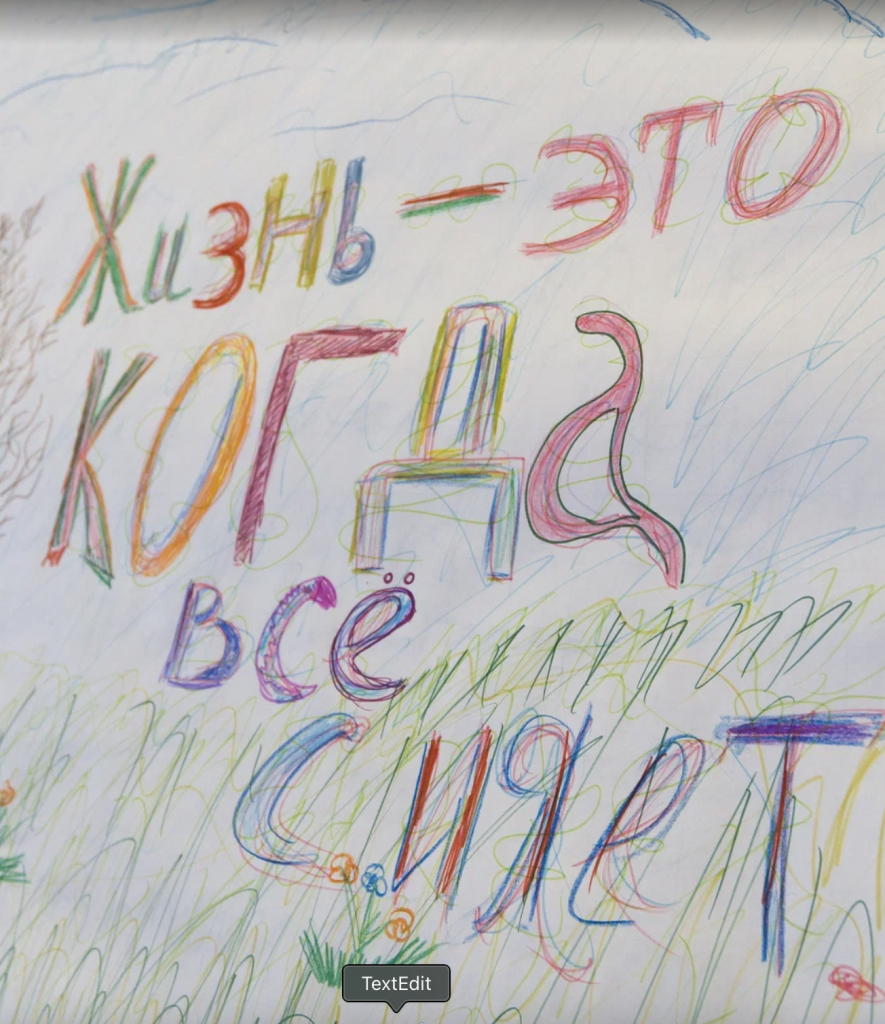 Жизнь — ЭТО
КОГДа
всё
сияет
TextEdit